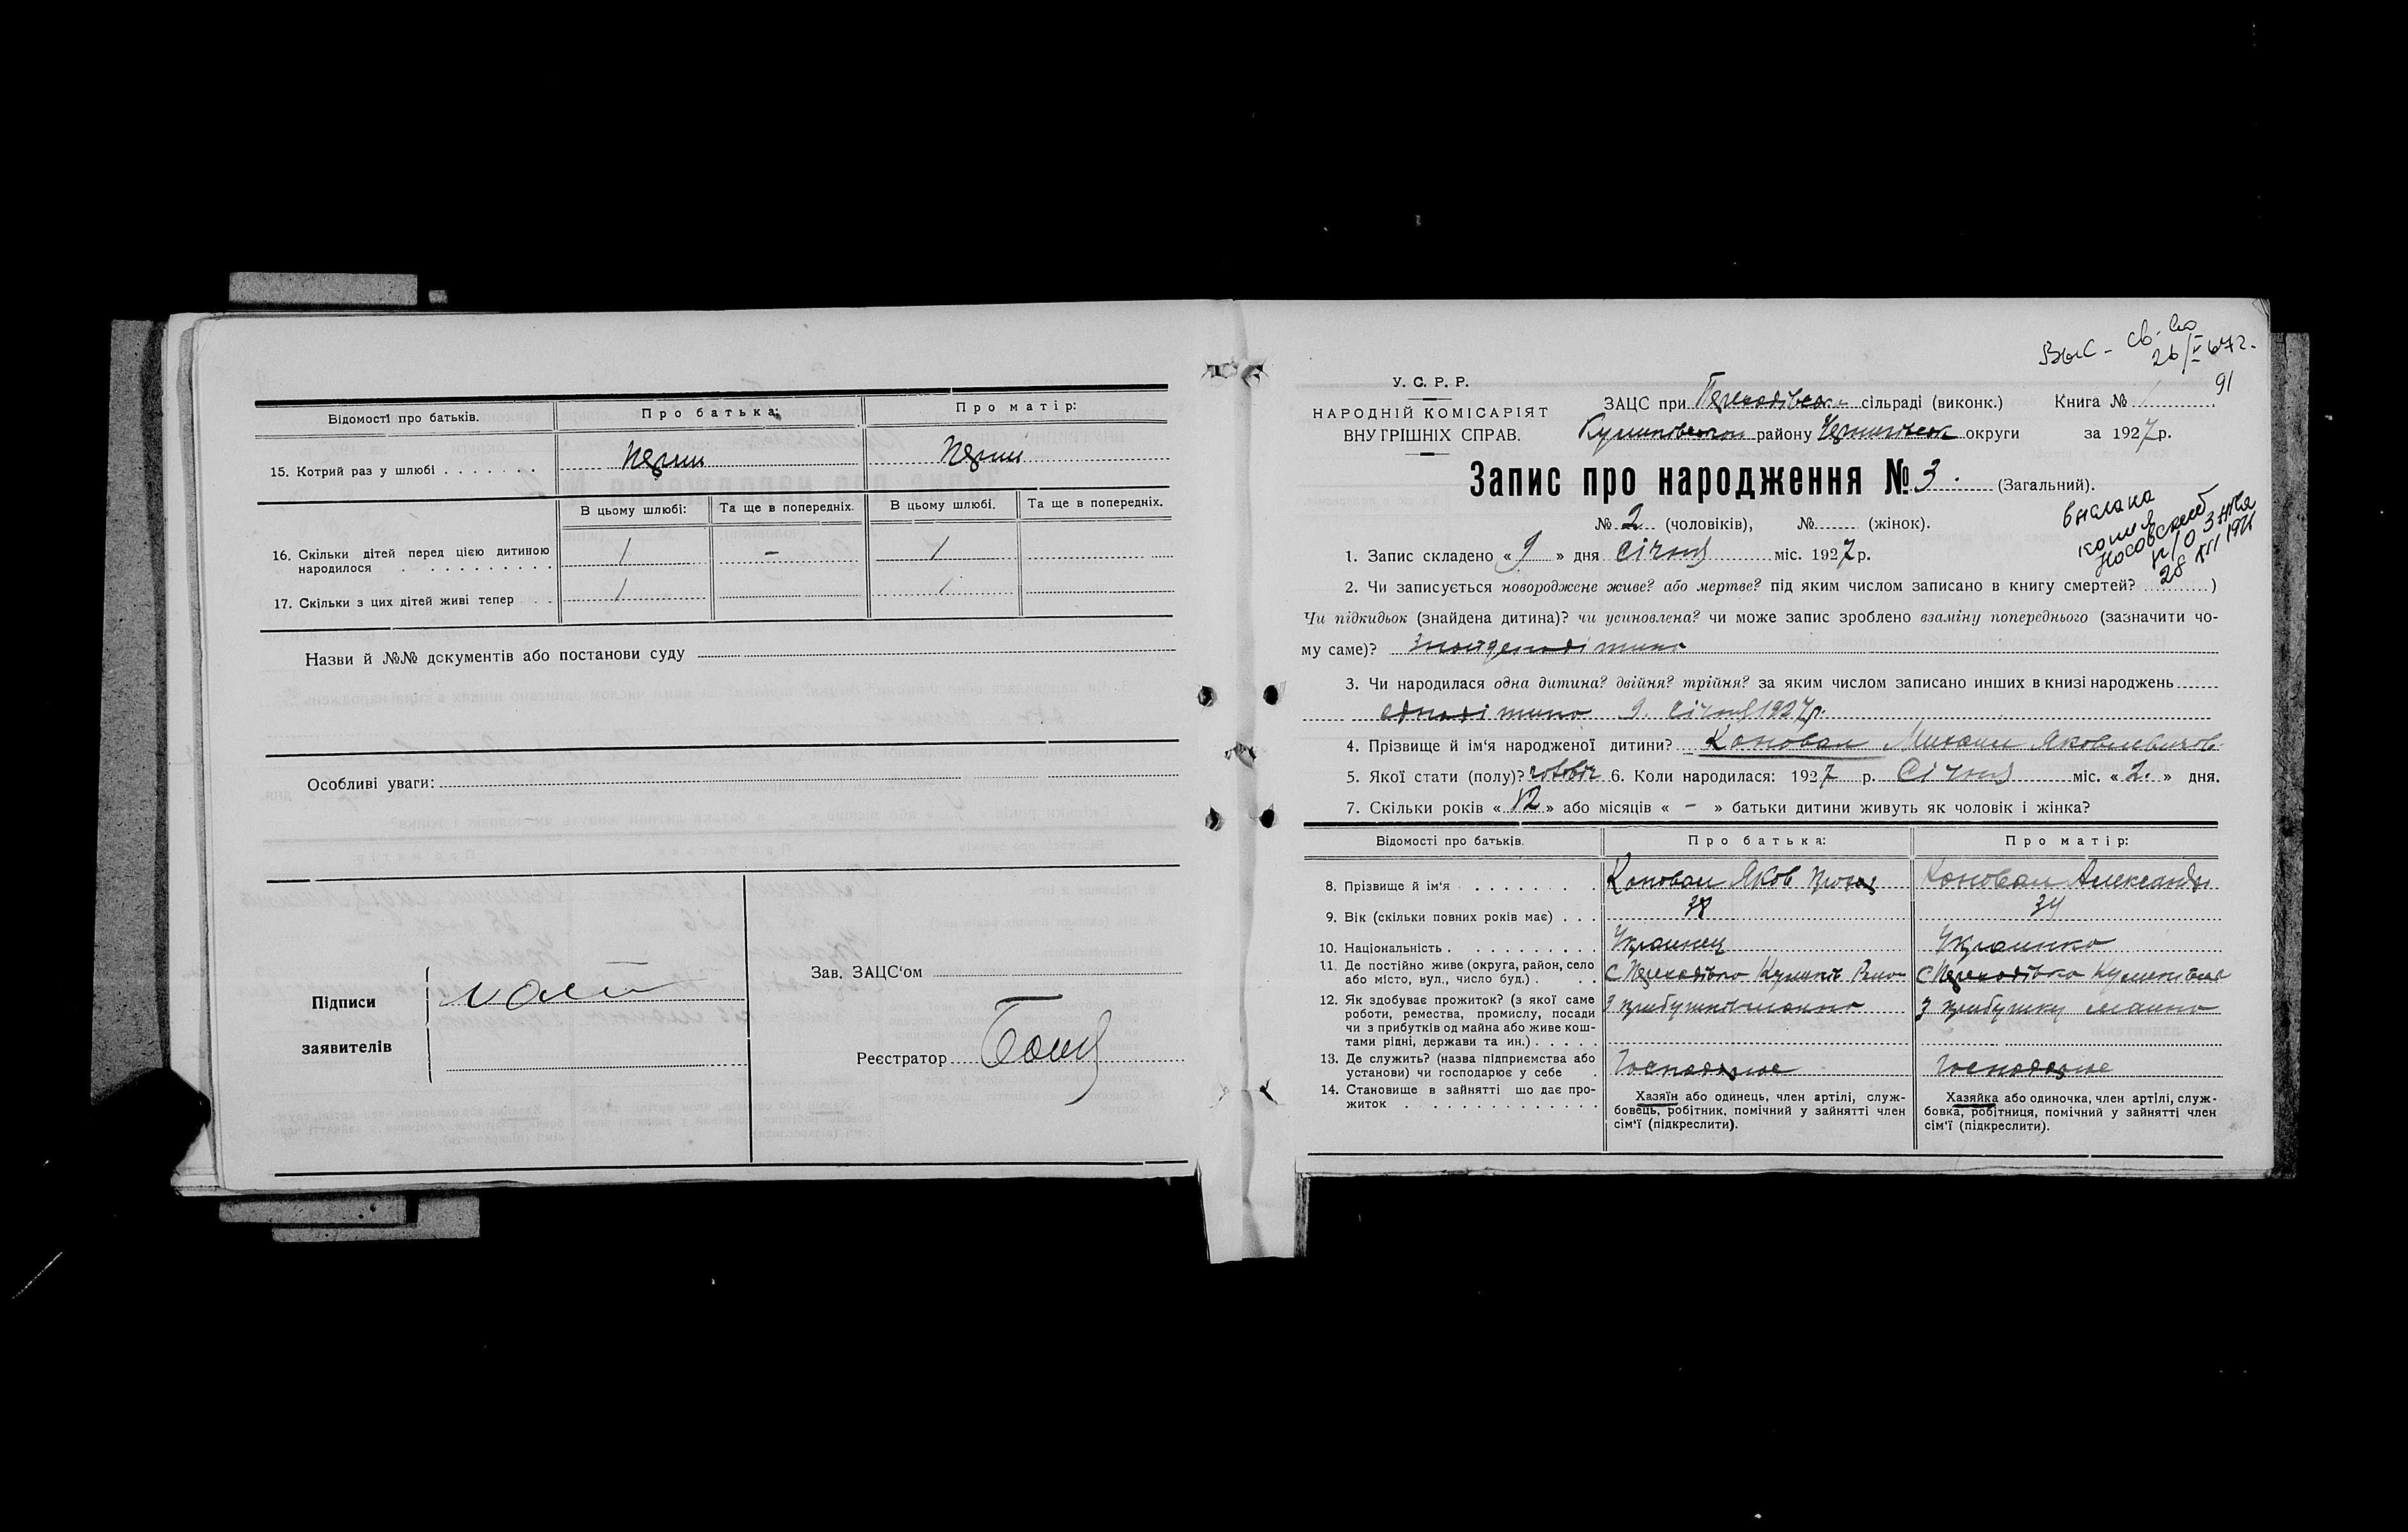 Відомості про батьків.
Про батька:
Про матір:
15. Котрий раз у шлюбі
Перши
Перши
В цьому шлюбі:
Та ще в попередніх.
В цьому шлюбі.
Та ще в попередніх.
16. Скільки дітей перед цією дитиною
народилося
1
–
1
17. Скільки з цих дітей живі тепер
1
1
Назви й №№ документів або постанови суду
Особливі уваги:
Підписи
заявителів
Зав. ЗАЦС'ом
Реєстратор
Выс - св.
26/V 67 г.
91
У. С. Р. Р.
НАРОДНІЙ КОМІСАРІЯТ
ВНУТРІШНІХ СПРАВ.
ЗАЦС при Переходівськ. сільраді (виконк.)
Книга № 1
Куликівськом району Чернигівськ округи
за 1927 р.
Запис про народження № 3. (Загальний).
№ 2 (чоловіків), № (жінок).
Носовский
28 XII 1971
1. Запис складено « 9 » дня Січня міс. 1927 р.
2. Чи записується новороджене живе? або мертве? під яким числом записано в книгу смертей? )
Чи підкидьок (знайдена дитина)? чи усиновлена? чи може запис зроблено взаміну попереднього (зазначити чо-
му саме)?
3. Чи народилася одна дитина? двійня? трійня? за яким числом записано инших в книзі народжень
одна дітина 9. Січня 1927 р.
4. Прізвище й ім'я народженої дитини? Коновал Михаил Яковлевичов
5. Якої стати (полу)? чоловіч 6. Коли народилася: 1927 р. Січня міс. « 2. » дня.
7. Скільки років « 12 » або місяців « – » батьки дитини живуть як чоловік і жінка?
Відомості про батьків.
Про батька:
Про матір:
8. Прізвище й ім'я
Коновал Яков
Коновал Александра
9. Вік (скільки повних років має)
38
34
10. Національність
Украинец
Украинко
11. Де постійно живе (округа, район, село
або місто, вул., число буд.)
с Переходівко Куликів Рано
с Переходівко Куликівськ
12. Як здобуває прожиток? (з якої саме
роботи, ремества, промислу, посади
чи з прибутків од майна або живе кош-
тами рідні, держави та ин.)
з прибутку маино
13. Де служить? (назва підприємства або
установи) чи господарює у себе
Господарює
Господарює
14. Становище в зайнятті що дає про-
житок
Хазяїн або одинець, член артілі, служ-
бовець, робітник, помічний у зайнятті член
сім'ї (підкреслити).
Хазяйка або одиночка, член артілі, служ-
бовка, робітниця, помічний у зайнятті член
сім'ї (підкреслити).